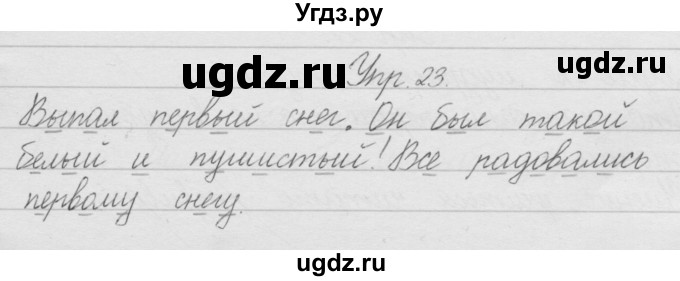 Угдз.ру
ugdz.ru Упр. 23. ugdz.ru
Выпал первый снег. Он был такой
белый и пушистый! Все радовались
первому снегу.
ugdz.ru
ugdz.ru